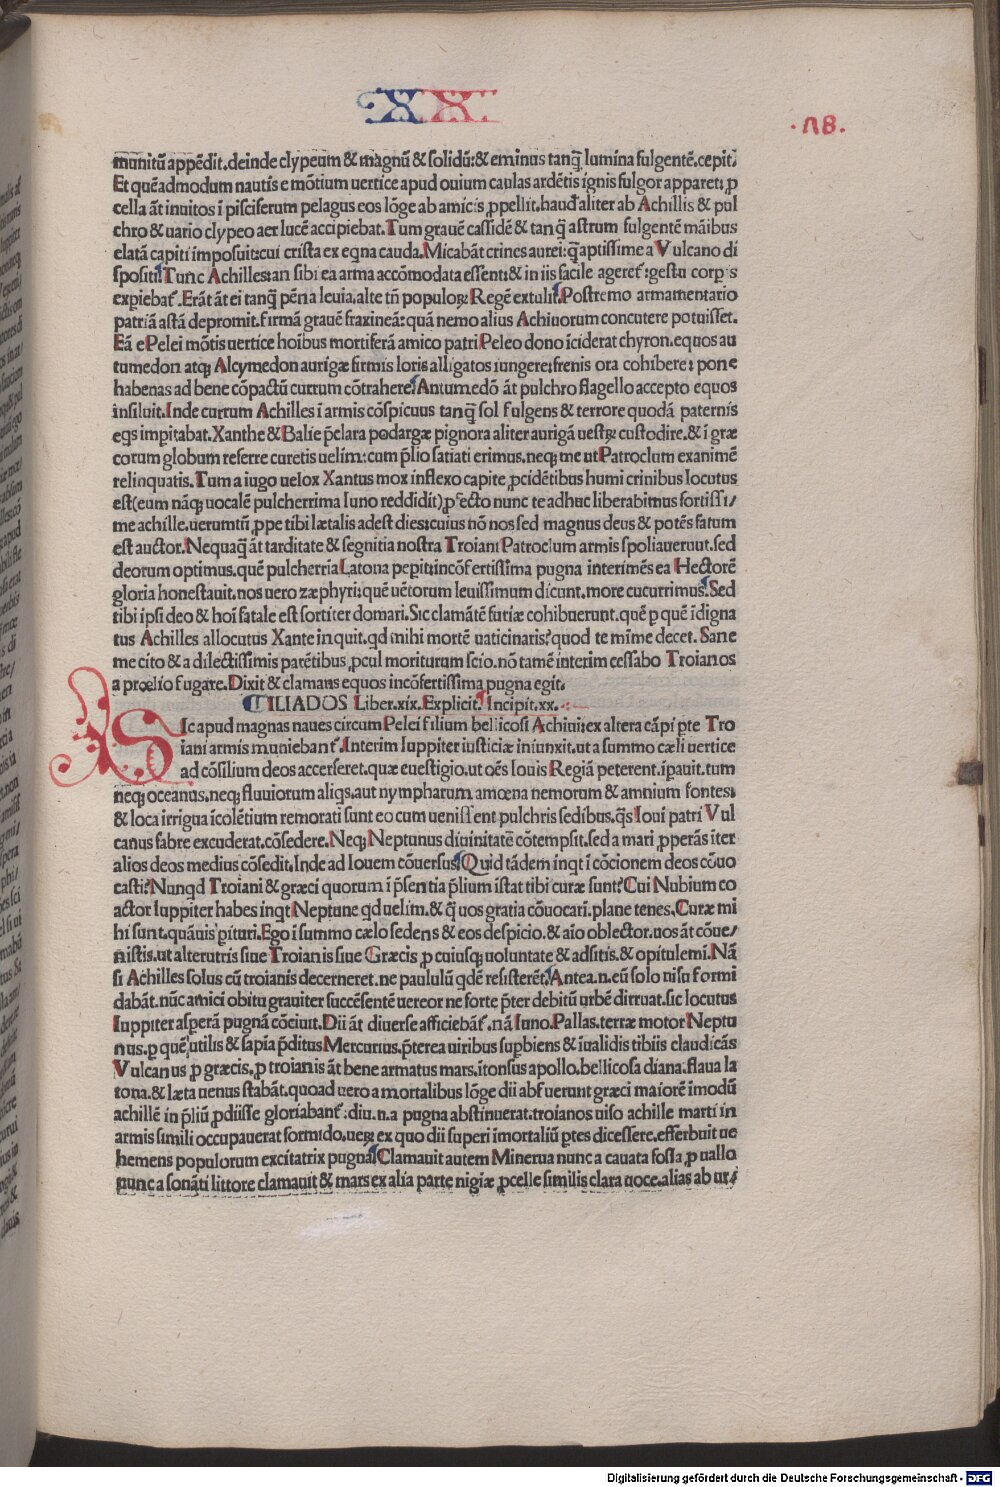 XX
·ΛB.
munitũ appẽdit.deinde clypeum & magnũ & solidũ:& eminus tanq̃ lumina fulgentẽ.cepit.
Et quẽadmodum nautis e mõtium uertice apud ouium caulas ardẽtis ignis fulgor apparet:ꝓ
cella ãt inuitos ĩ pisciferum pelagus eos lõge ab amicis ꝓpellit.haud aliter ab Achillis & pul
chro & uario clypeo aer lucẽ accipiebat.Tum grauẽ cassidẽ & tanq̃ astrum fulgentẽ mãibus
elatã capiti imposuit:cui crista ex eqna cauda.Micabãt crines aurei:q̃ aptissime a Vulcano di
spositi.Tunc Achilles:an sibi ea arma accõmodata essent:& in iis facile ageret̃:gestu corpis
expiebat̃.Erãt ãt ei tanq̃ pẽna leuia.alte tñ populoꝝ Regẽ extulit.Postremo armamentario
patriã astã depromit.firmã grauẽ fraxineã:quã nemo alius Achiuorum concutere potuisset.
Eã e Pelei mõtis uertice hoĩbus mortiferã amico patri Peleo dono ĩciderat chyron.equos au
tumedon atqꝫ Alcymedon aurigæ firmis loris alligatos iungere:frenis ora cohibere: pone
habenas ad bene cõpactũ currum cõtrahere.Antumedõ ãt pulchro flagello accepto equos
insiluit.Inde currum Achilles ĩ armis cõspicuus tanq̃ sol fulgens & terrore quodã paternis
eqs impitabat.Xanthe & Balie p̃clara podargæ pignora aliter aurigã uestꝝ custodire.& ĩ græ
corum globum referre curetis uelim:cum p̃lio satiati erimus.neqꝫ me ut Patroclum exanimẽ
relinquatis.Tum a iugo uelox Xantus mox inflexo capite ꝓcidẽtibus humi crinibus locutus
est(eum nãqꝫ uocalẽ pulcherrima Iuno reddidit)ꝓfecto nunc te adhuc liberabimus fortissi/
me achille.uerumtñ ꝓpe tibi lætalis adest dies:cuius nõ nos sed magnus deus & potẽs fatum
est auctor.Nequaq̃ ãt tarditate & segnitia nostra Troiani Patroclum armis spoliauerunt.sed
deorum optimus.quẽ pulcherria Latona pepit:incõfertissima pugna interimẽs ea Hectorẽ
gloria honestauit.nos uero zæphyri:quẽ uẽtorum leuissimum dicunt.more cucurrimus.Sed
tibi ipsi deo & hoĩ fatale est fortiter domari.Sic clamãtẽ furiæ cohibuerunt.quẽ ꝑ quẽ ĩdigna
tus Achilles allocutus Xante inquit.qd mihi mortẽ uaticinaris?quod te mĩme decet. Sane
me cito & a dilectissimis parẽtibus ꝓcul moriturum scio.nõ tamẽ interim cessabo Troianos
a prœlio fugare.Dixit & clamans equos incõfertissima pugna egit.
ILIADOS Liber.xix.Explicit. Incipit.xx.
SIc apud magnas naues circum Pelei filium bellicosi Achiui:ex altera cãpi ꝑte Tro
iani armis muniebant̃.Interim Iuppiter iusticiæ iniunxit.ut a summo cæli uertice
ad cõsilium deos accerseret.quæ euestigio.ut oẽs Iouis Regiã peterent.ĩpauit.tum
neqꝫ oceanus.neqꝫ fluuiorum aliqs.aut nympharum amœna nemorum & amnium fontes:
& loca irrigua ĩcolẽtium remorati sunt eo cum uenissent pulchris sedibus.q̃s Ioui patri Vul
canus fabre excuderat.cõsedere.Neqꝫ Neptunus diuinitatẽ cõtempsit.sed a mari ꝓperãs ĩter
alios deos medius cõsedit.Inde ad Iouem cõuersus.Quid tãdem inqt ĩ cõcionem deos cõuo
casti?Nunqd Troiani & græci quorum ĩ p̃sentia p̃lium ĩstat tibi curæ sunt?Cui Nubium co
actor Iuppiter habes inqt Neptune qd uelim.& q̃ uos gratia cõuocari.plane tenes.Curæ mi
hi sunt.quãuis pituri.Ego ĩ summo cælo sedens & eos despicio.& aio oblector.uos ãt cõue/
nistis.ut alterutris siue Troianis siue Græcis ꝓ cuiusqꝫ uoluntate & adsitis.& opitulemi.Nã
si Achilles solus cũ troianis decerneret.ne paululũ qdẽ resisterẽt.Antea.n.eũ solo uisu formi
dabãt.nũc amici obitu grauiter succẽsentẽ uereor ne forte p̃ter debitũ urbẽ diruat.sic locutus
Iuppiter asperã pugnã cõciuit.Dii ãt diuerse afficiebãt̃.nã Iuno.Pallas.terræ motor Neptu
nus.ꝑ quẽ utilis & sapia p̃ditus Mercurius.p̃terea uiribus supbiens & ĩualidis tibiis claudicãs
Vulcanus ꝓ græcis.ꝓ troianis ãt bene armatus mars.ĩtonsus apollo.bellicosa diana:flaua la
tona.& læta uenus stabãt.quoad uero a mortalibus lõge dii abfuerunt græci maiorẽ ĩmodũ
achillẽ in p̃liũ ꝓdiisse gloriabant̃:diu.n.a pugna abstinuerat.troianos uiso achille marti in
armis simili occupauerat formido.ueꝝ ex quo dii superi ĩmortaliũ ꝑtes dicessere.efferbuit ue
hemens populorum excitatrix pugna.Clamauit autem Minerua nunc a cauata fossa ꝓ uallo
nunc a sonãti littore clamauit & mars ex alia parte nigræ ꝓcelle similis clara uoce.alias ab ur/
Digitalisierung gefördert durch die Deutsche Forschungsgemeinschaft - DFG